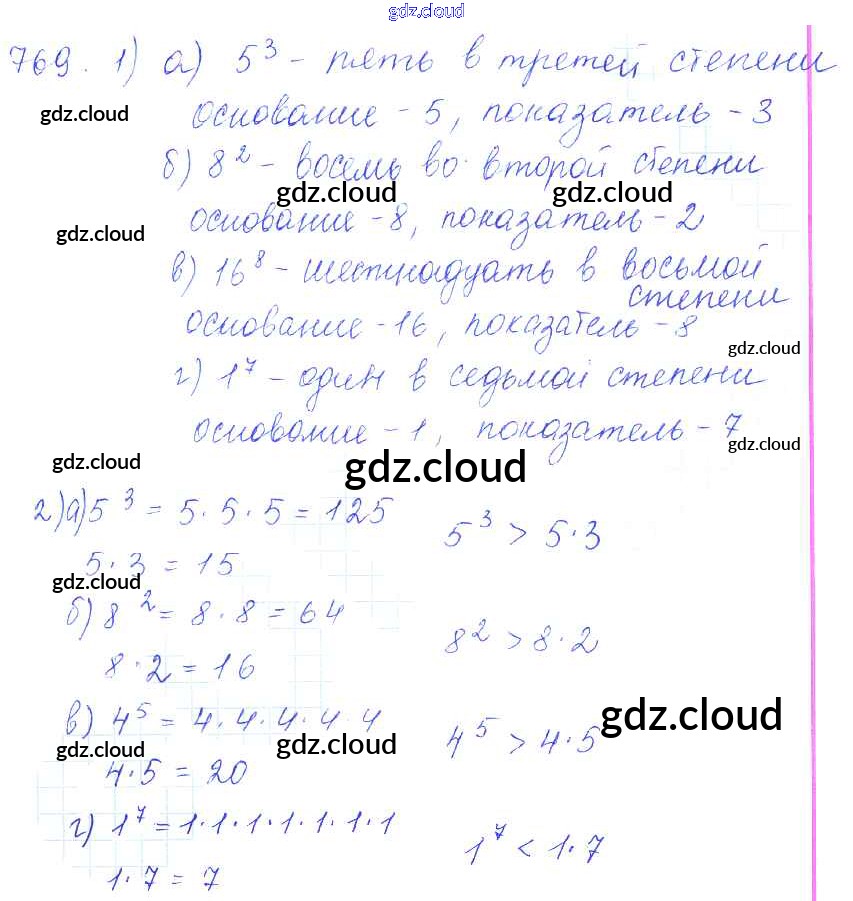 gdz.cloud
769. 1) а) 5³ - пять в третей степени
gdz.cloud
основание - 5, показатель - 3
б) 8² - восемь во второй степени
gdz.cloud gdz.cloud
gdz.cloud
основание - 8, показатель - 2
в) 16⁸ - шестнадцать в восьмой
степени
основание - 16, показатель - 8
gdz.cloud
г) 1⁷ - один в седьмой степени
основание - 1, показатель - 7
gdz.cloud
gdz.cloud
gdz.cloud
2) а) 5³ = 5 · 5 · 5 = 125 5³ > 5 · 3
5 · 3 = 15
gdz.cloud
б) 8² = 8 · 8 = 64 8² > 8 · 2
8 · 2 = 16
в) 4⁵ = 4 · 4 · 4 · 4 · 4 4⁵ > 4 · 5
gdz.cloud
gdz.cloud gdz.cloud
4 · 5 = 20
г) 1⁷ = 1 · 1 · 1 · 1 · 1 · 1 · 1 1⁷ < 1 · 7
1 · 7 = 7